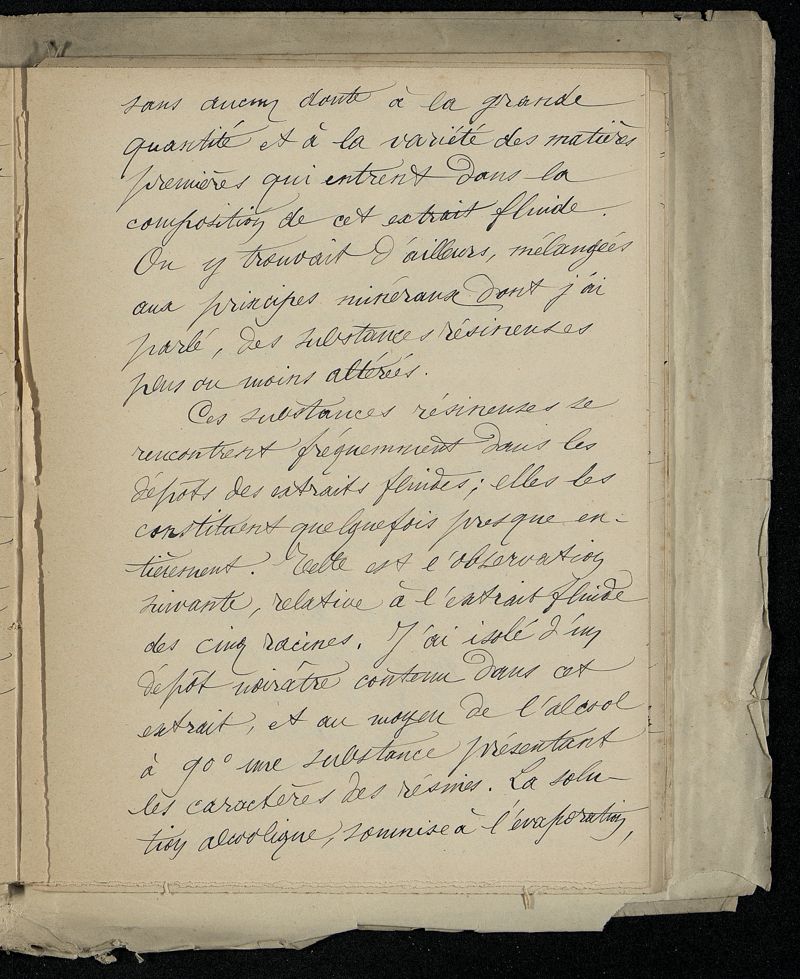 sans aucun doute à la grande
quantité et à la variété des matières
premières qui entrent dans la
composition de cet extrait fluide.
On y trouvait d'ailleurs, mélangées
aux principes minéraux dont j'ai
parlé, des substances résineuses
plus ou moins altérées.
Ces substances résineuses se
rencontrent fréquemment dans les
dépôts des extraits fluides; elles les
constituent quelquefois presque en-
tièrement. Telle est l'observation
suivante, relative à l'extrait fluide
des cinq racines. J'ai isolé d'un
dépôt noirâtre contenu dans cet
extrait, et au moyen de l'alcool
à 90° une substance présentant
les caractères des résines. La solu-
tion alcoolique, soumise à l'évaporation,